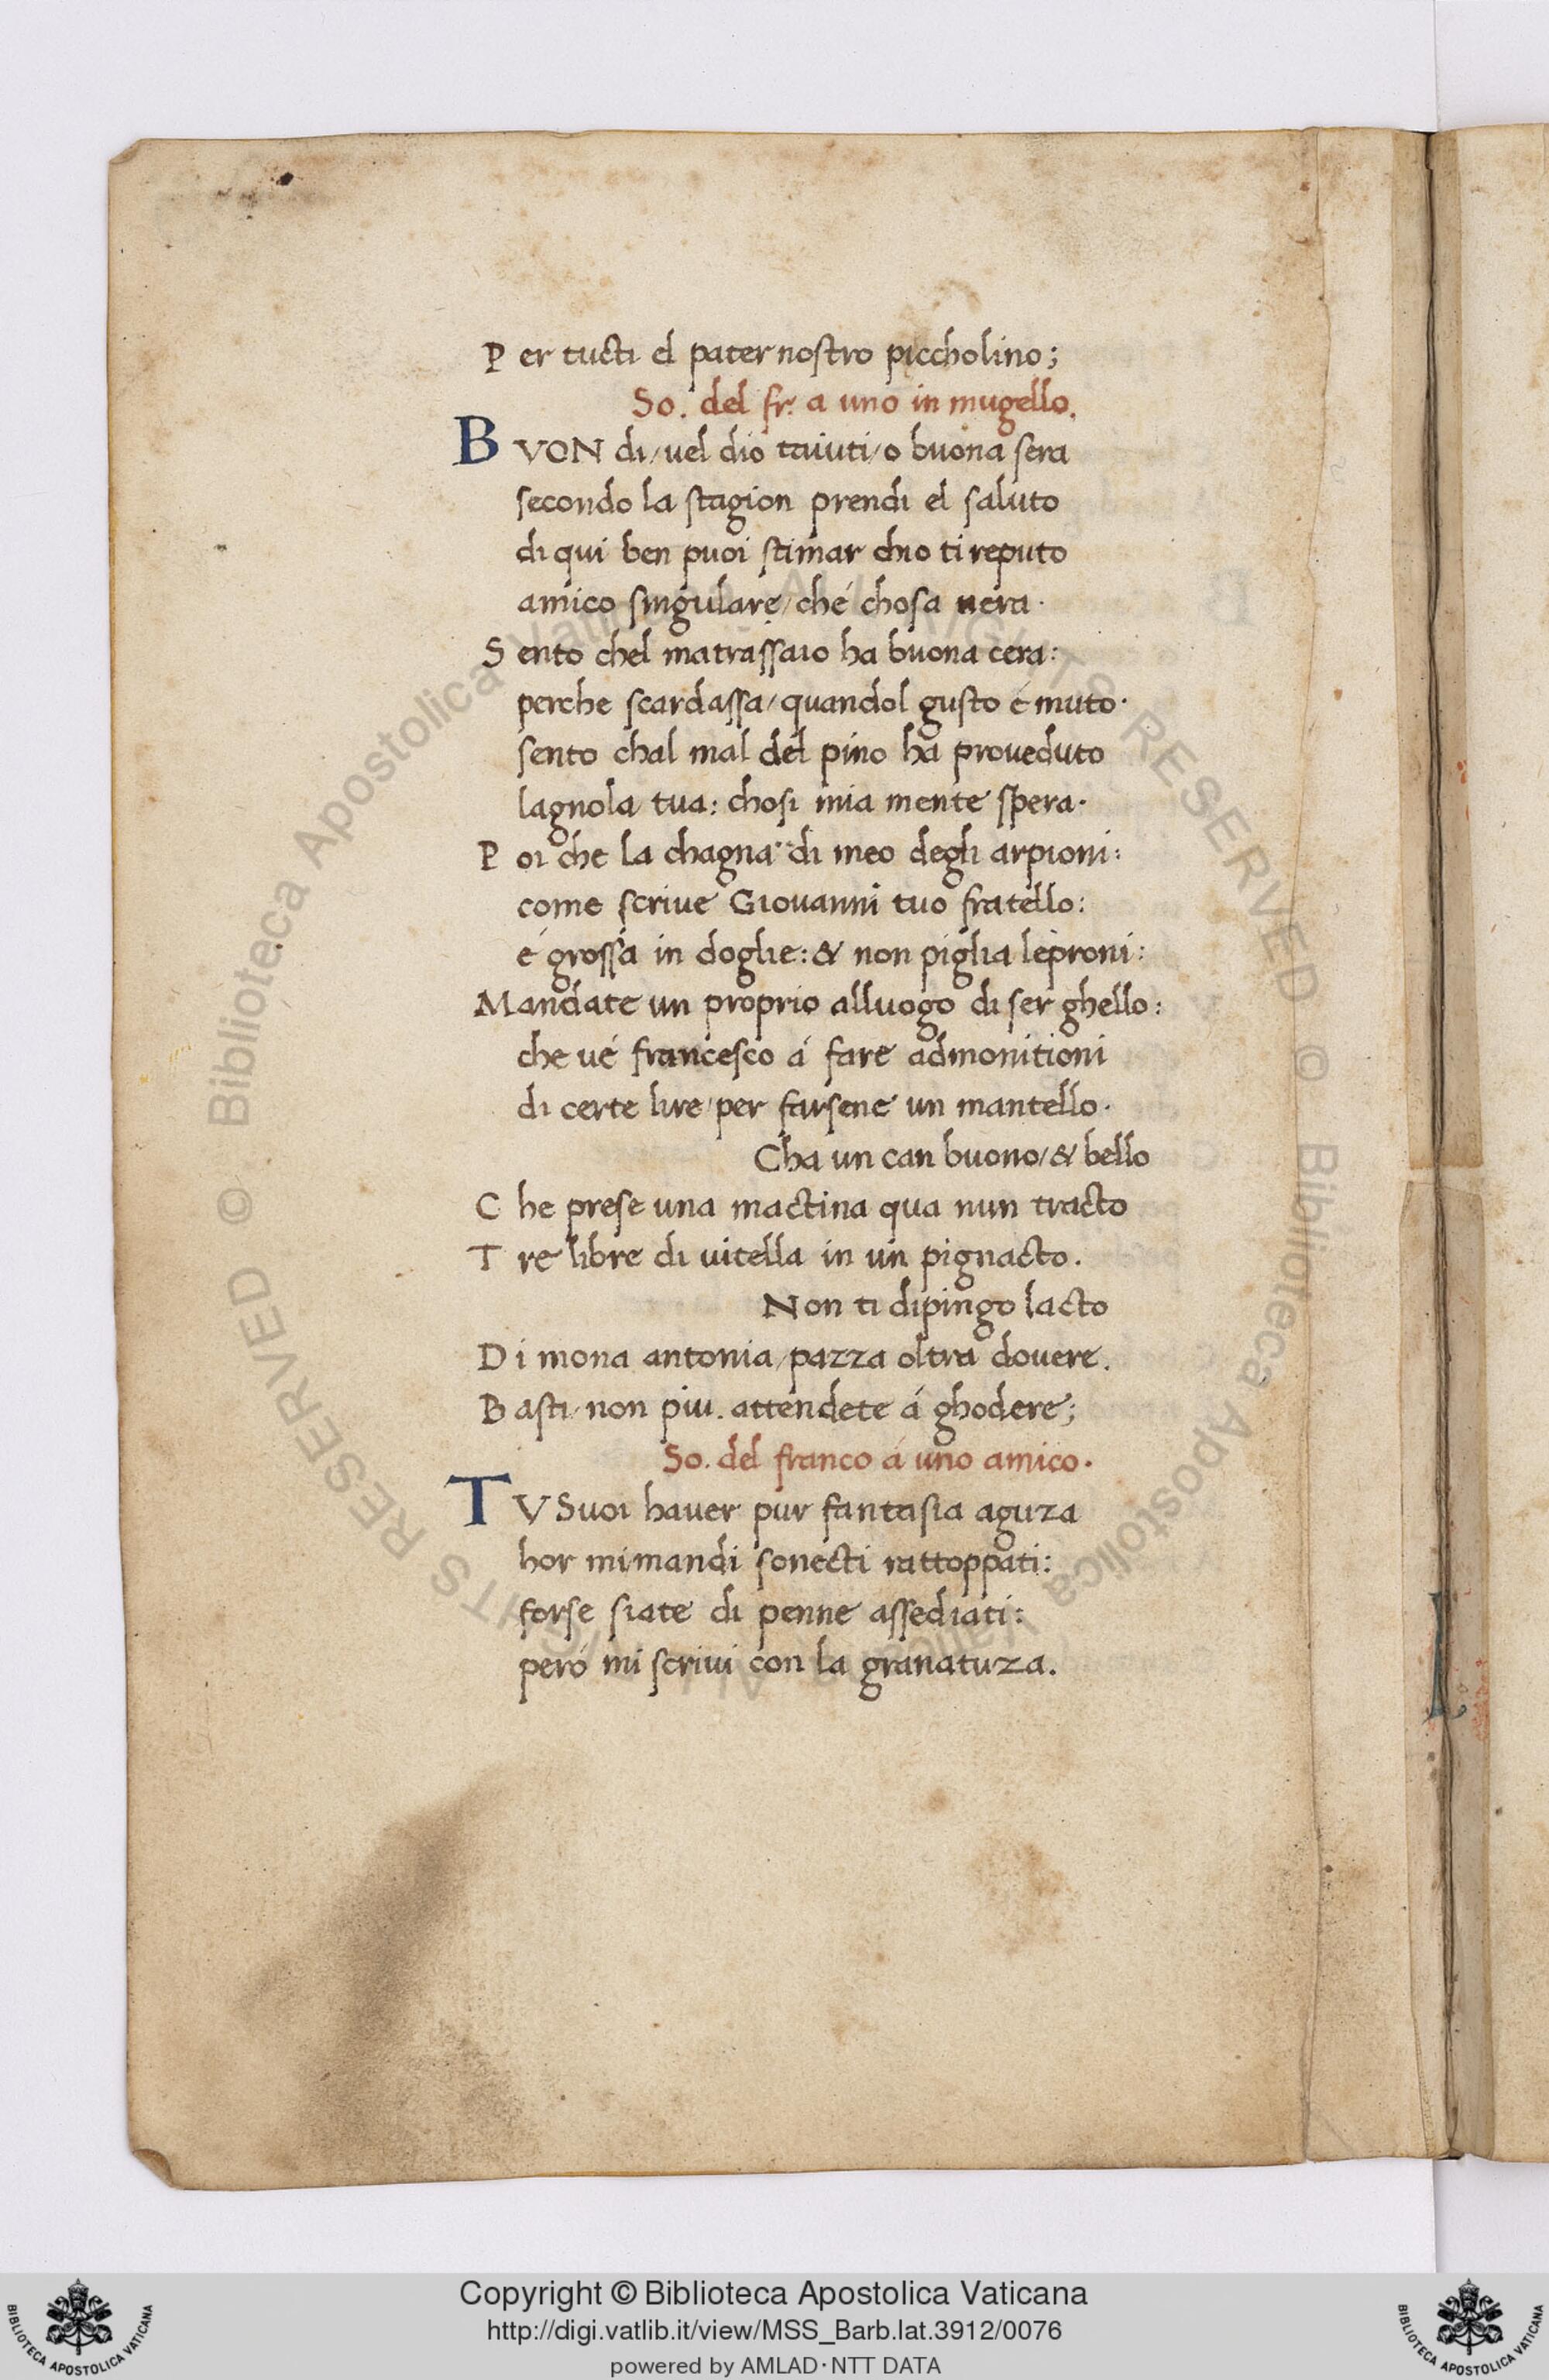 Per tucti el pater nostro piccholino;
So. del fr. a uno in mugello.
BVON di/uel dio taiuti/o buona sera
secondo la stagion prendi el saluto
di qui ben puoi stimar chio ti reputo
amico singulare/ché chosa uera·
Sento chel matrassaio ha buona cera:
perche scardassa/quandol gusto é muto·
sento chal mal del pino ha proueduto
lagnola tua: chosi mia mente spera·
Poi che la chagna di meo degli arpioni:
come scriue Giouanni tuo fratello:
é grossa in doglie: & non piglia leproni:
Mandate un proprio alluogo di ser ghello:
che ué francesco á fare admonitioni
di certe lire/per farsene un mantello·
Cha un can buono/& bello
Che prese una mactina qua nun tracto
Tre libre di uitella in un pignacto.
Non ti dipingo lacto
Di mona antonia/pazza oltra douere.
Basti/non piu. attendete á ghodere;
So. del franco á uno amico·
TV Suoi hauer pur fantasia aguza
hor mi mandi sonecti rattoppati:
forse siate di penne assediati:
peró mi scriui con la granatuza.
Copyright © Biblioteca Apostolica Vaticana
http://digi.vatlib.it/view/MSS_Barb.lat.3912/0076
powered by AMLAD·NTT DATA
BIBLIOTECA APOSTOLICA VATICANA
BIBLIOTECA APOSTOLICA VATICANA